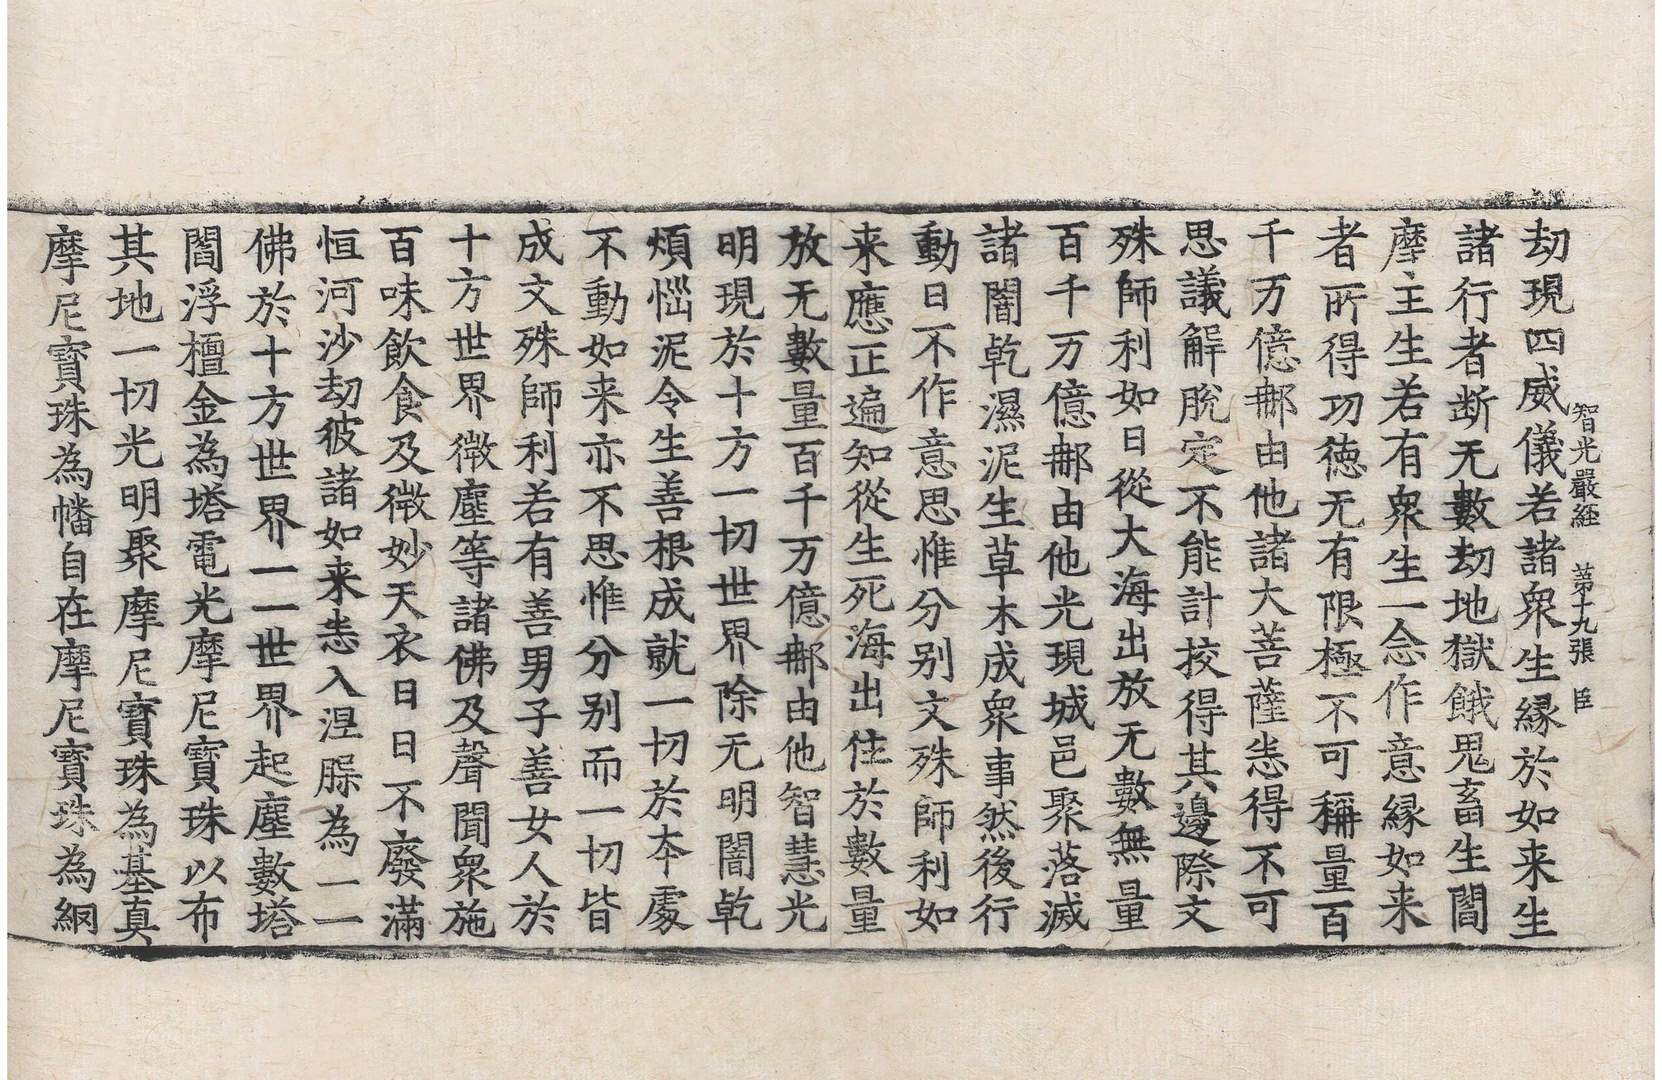 智光嚴経　苐十九張　臣
劫現四威儀若諸衆生縁於如来生
諸行者断无數劫地獄餓鬼畜生閻
摩主生若有衆生一念作意縁如来
者所得功徳无有限極不可稱量百
千万億那由他諸大菩薩悉得不可
思議解脫定不能計挍得其邊際文
殊師利如日從大海出放无數無量
百千万億那由他光現城邑聚落滅
諸闇乾濕泥生草木成衆事然後行
動日不作意思惟分别文殊師利如
来應正遍知從生死海出住於數量
放无數量百千万億那由他智慧光
明現於十方一切世界除无明闇乾
煩惱泥令生善根成就一切於本處
不動如来亦不思惟分别而一切皆
成文殊師利若有善男子善女人於
十方世界微塵等諸佛及聲聞衆施
百味飲食及微妙天衣日日不廢滿
恒河沙劫彼諸如来悉入涅槃為一一
佛於十方世界一一世界起塵數塔
閻浮檀金為塔電光摩尼寶珠以布
其地一切光明聚摩尼寶珠為基真
摩尼寶珠為幡自在摩尼寶珠為網